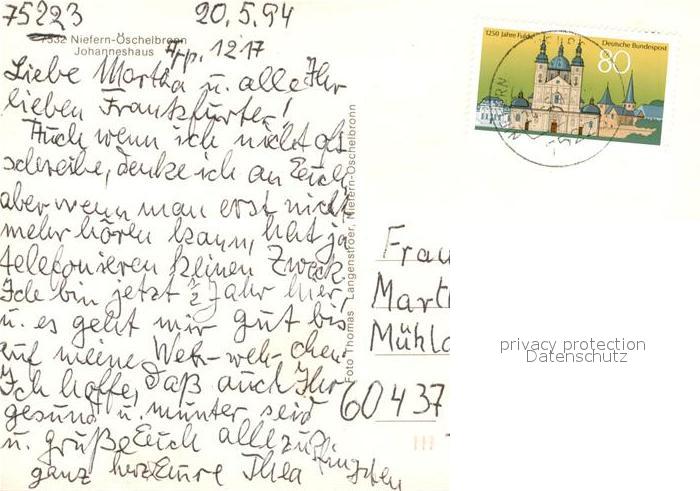 75223 20.5.94
7532 Niefern-Öschelbronn
Johanneshaus App. 1217
Liebe Martha u. alle Ihr
lieben Frankfurter!
Auch wenn ich nicht oft
schreibe, denke ich an Euch,
aber wenn man erst nicht
mehr hören kann, hat ja
telefonieren keinen Zweck.
Ich bin jetzt ½ Jahr hier,
u. es geht mir gut bis
auf meine Weh-weh-chen.
Ich hoffe, daß auch Ihr
gesund u. munter seid
u. grüße Euch alle zu Pfingsten
ganz herz Eure Thea
Foto Thomas Langenstroer, Niefern-Öschelbronn
1250 Jahre Fulda
Deutsche Bundespost
80
Frau
Mart
Mühl
60437
privacy protection
Datenschutz